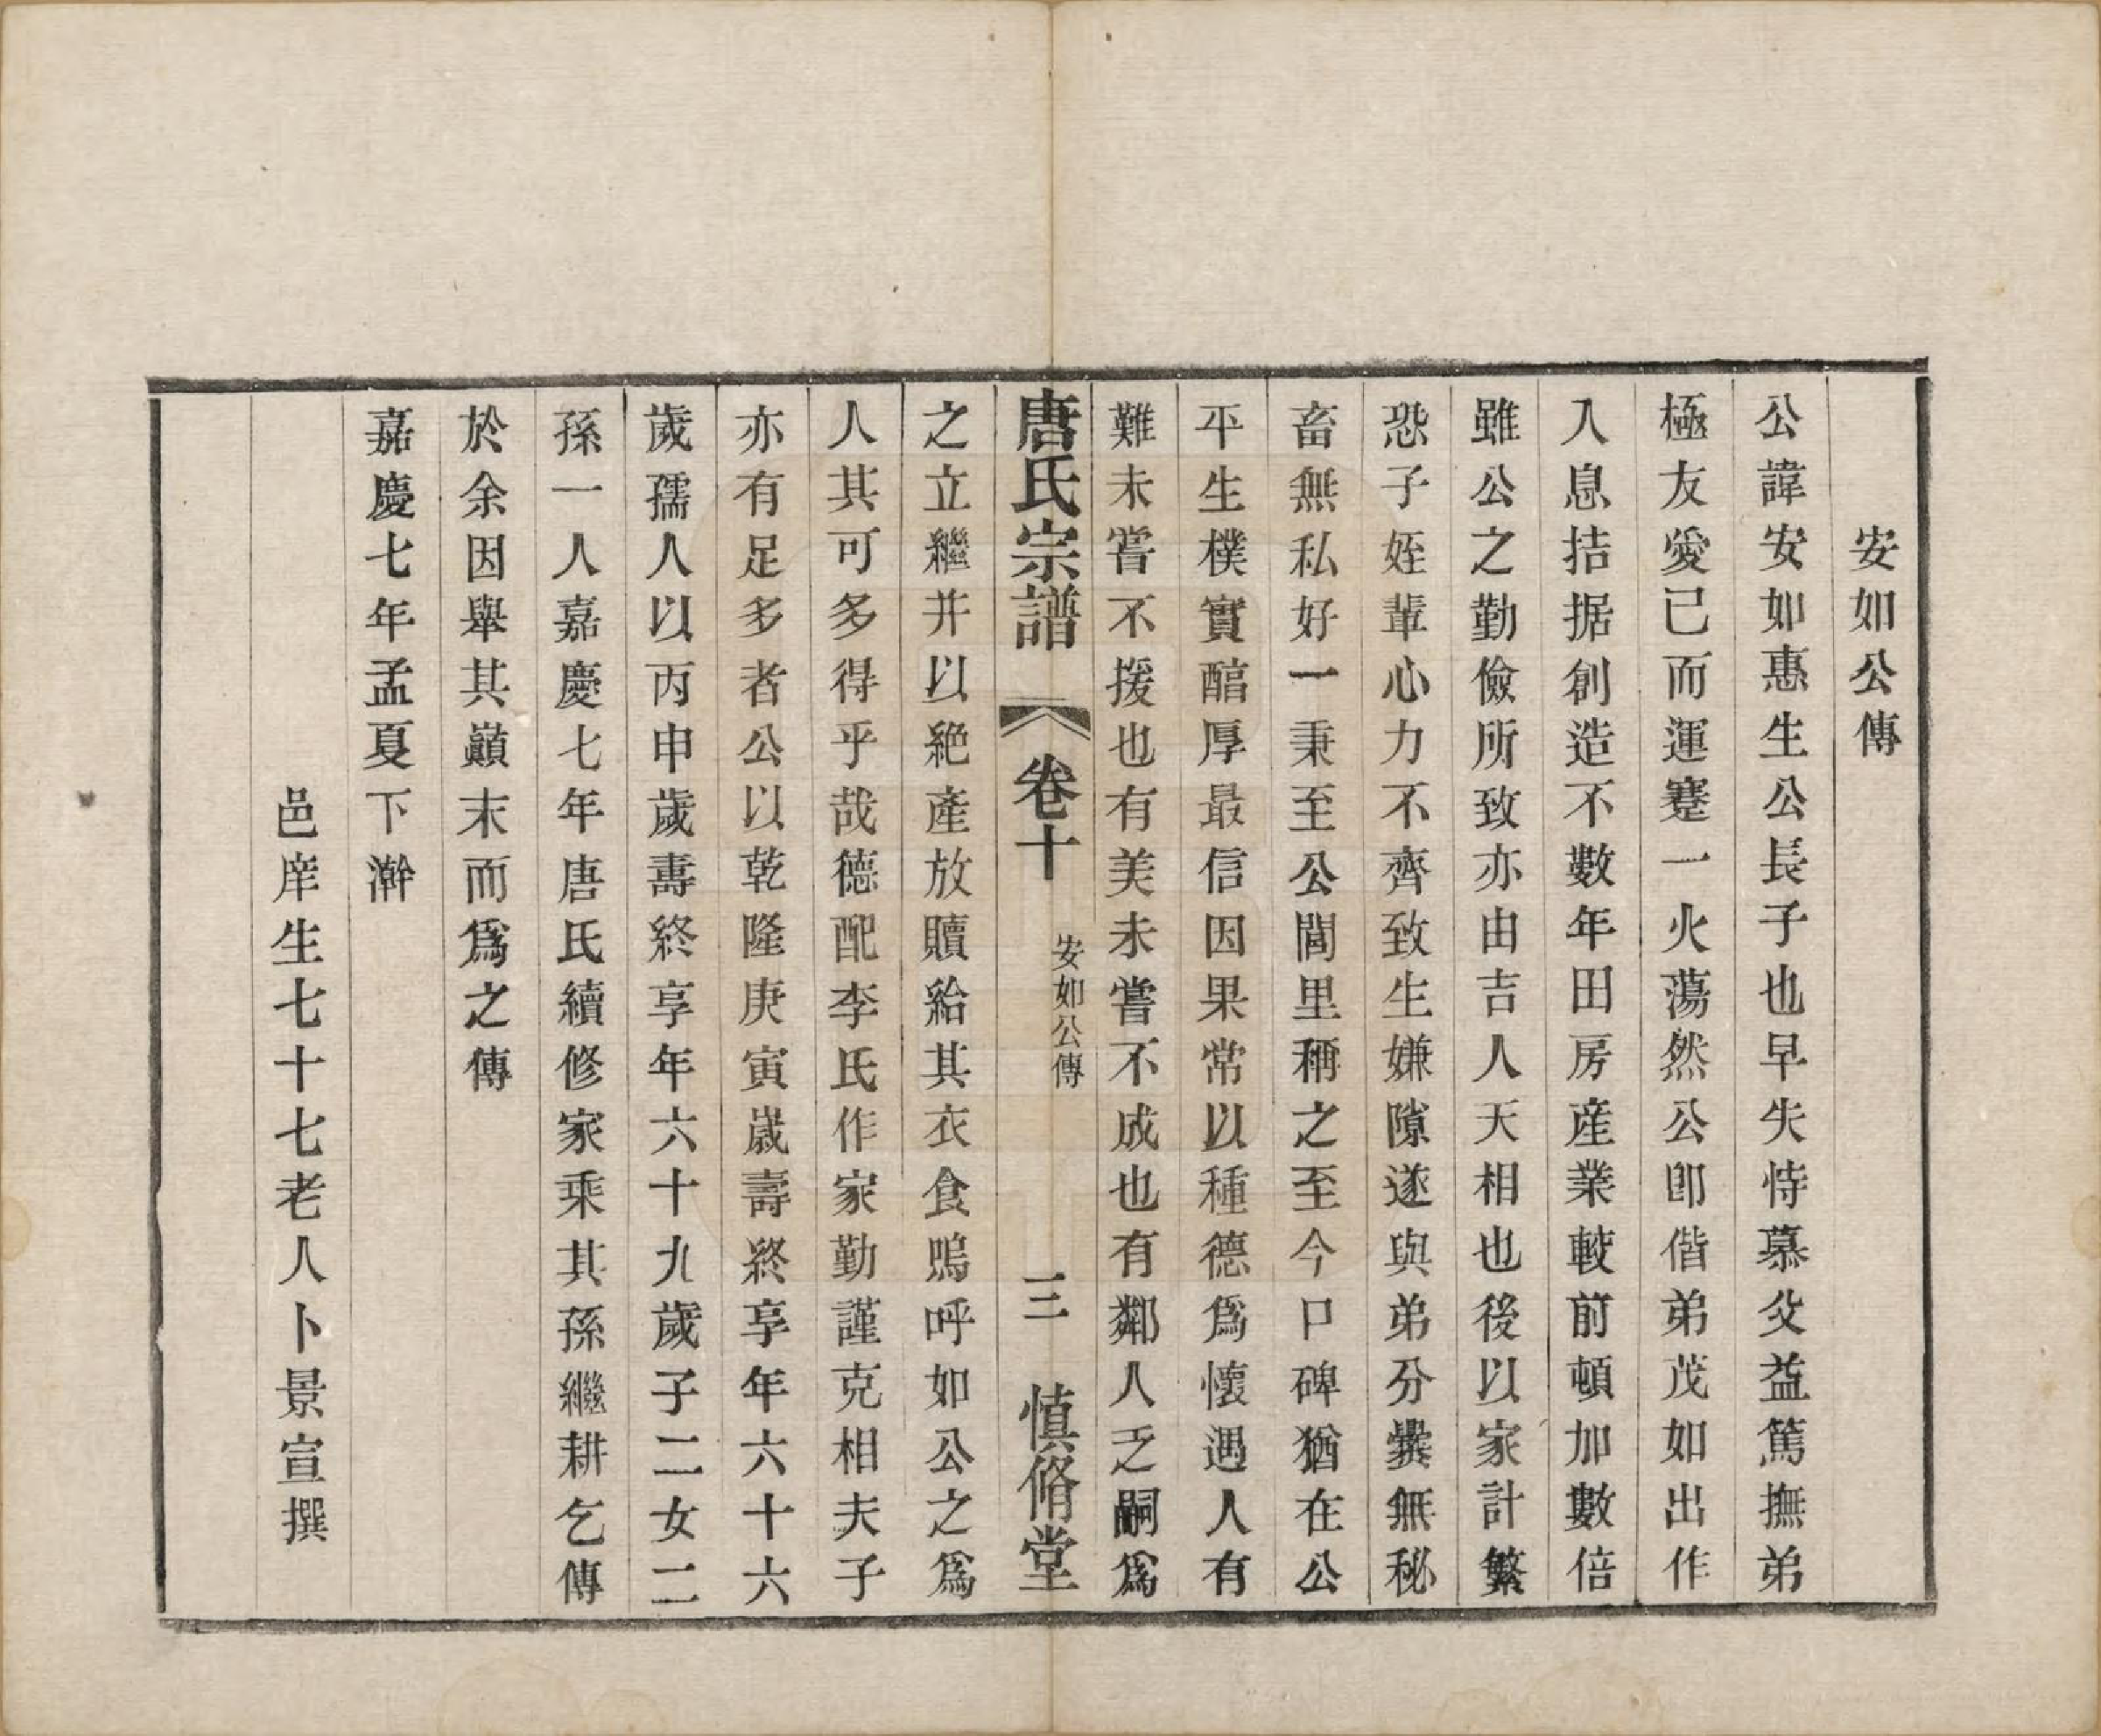 安如公傳
公諱安如惠生公長子也早失恃慕父益篤撫弟
極友愛已而運蹇一火蕩然公卽偕弟茂如出作
入息拮据創造不數年田房產業較前頓加數倍
雖公之勤儉所致亦由吉人天相也後以家計繁
恐子姪輩心力不齊致生嫌隙遂與弟分爨無秘
畜無私好一秉至公閭里稱之至今口碑猶在公
平生樸實醕厚最信因果常以種德爲懷遇人有
難未嘗不援也有美未嘗不成也有鄰人乏嗣爲
唐氏宗譜 卷十 安如公傳 三 慎脩堂
之立繼并以絕產放贖給其衣食嗚呼如公之爲
人其可多得乎哉德配李氏作家勤謹克相夫子
亦有足多者公以乾隆庚寅歲壽終享年六十六
歲孺人以丙申歲壽終享年六十九歲子二女二
孫一人嘉慶七年唐氏續修家乘其孫繼耕乞傳
於余因舉其巔末而爲之傳
嘉慶七年孟夏下澣
邑庠生七十七老人卜景宣撰